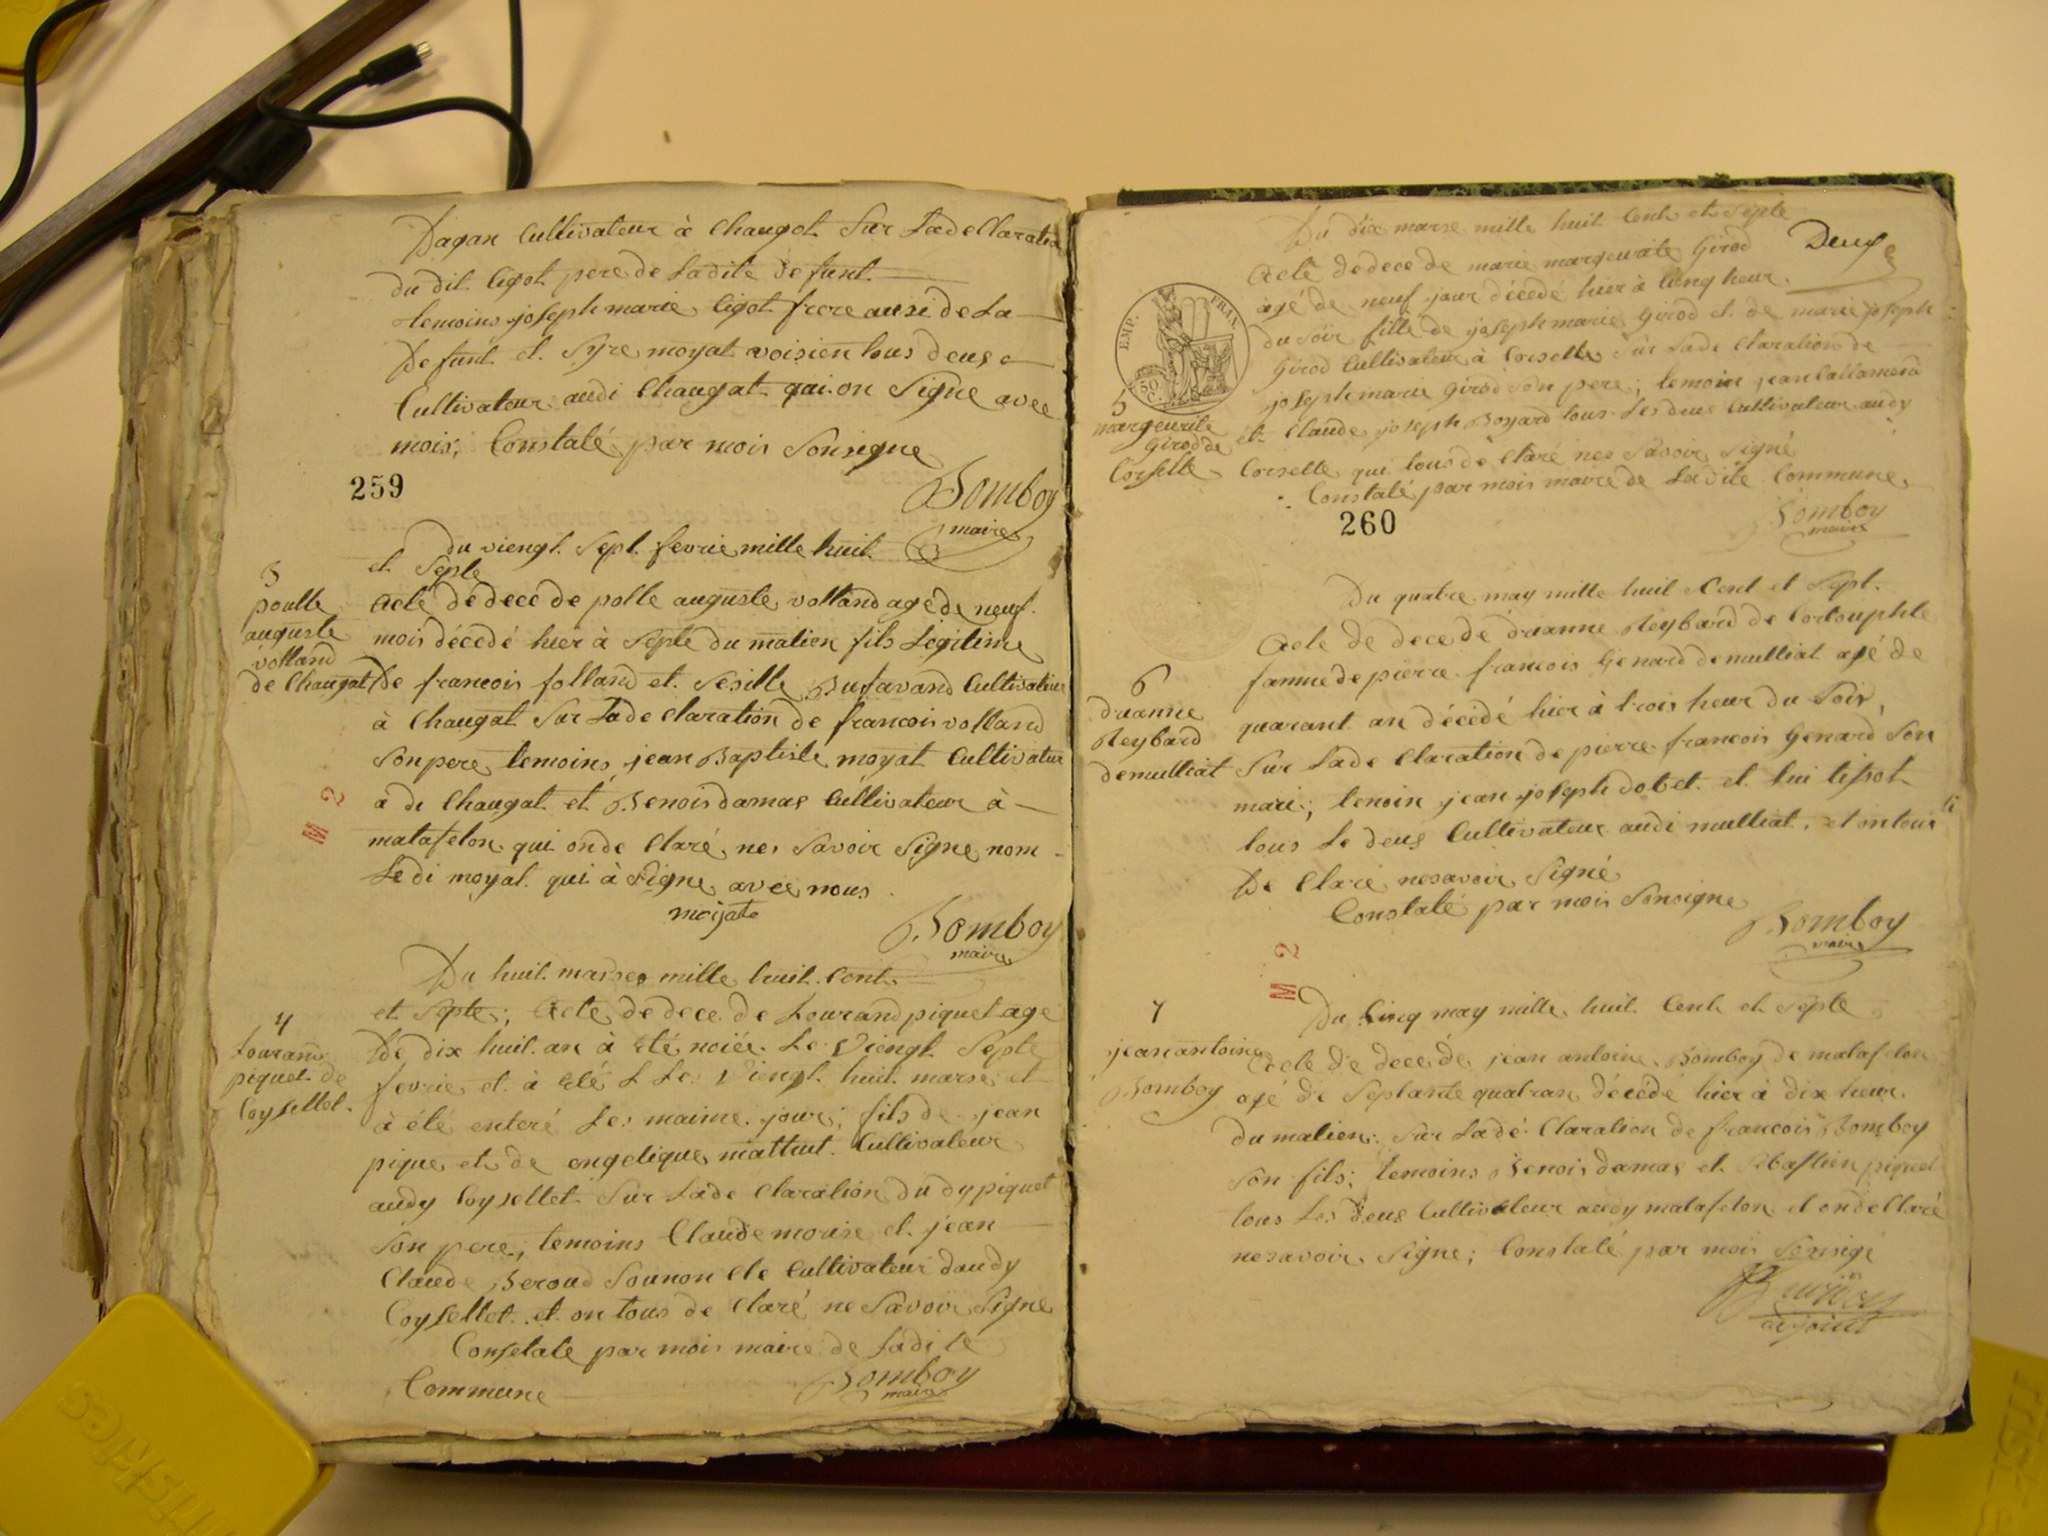 Dagan Cultivateur à Chaugat Sur Ladeclaration
du dit Cigot pere de Ladite defunt
temoins joseph marie Cigot frere ausi de La
Defunt et Syre moyat voisien tous deus
Cultivateur audi Chaugat qui on Signe avec
mois; Constaté par mois Sonsigne
259
Bomboy
maire
Du viengt Sept fevrie mille huit
et Septe
3
poulle
auguste
volland
de Chaugat
Acte dédecé de polle auguste volland agé de neuf
mois décédé hier à Septe du matien fils Legitime
De francois folland et Sesille Bufavand Cultivateur
à Chaugat Sur Lade Claration de francois volland
Son pere temoins jean Baptiste moyat Cultivateur
a di Chaugat et Benois damas Cultivateur à
matafelon qui onde Claré ne Savoir Signe nom
Ledi moyat qui à Signe avec nous
moyate
Bomboy
maire
M 2
Du huit marse mille huit Cent
4
Lourand
piquet de
Coysellet
et Septe; Acte de dece de Lourand piquet age
De dix huit an à été noiée Le Viengt Septe
fevrie et à été L Le Viengt huit marse et
à été enteré Le maime jour; fils de jean
pique et de engelique mattut Cultivateur
audy Coysellet Sur Lade Claration du dy piquet
Son pere; temoins Claude mouise et jean
Claude Beroud Sounon Cle Cultivateur daudy
Coysellet et on tous de Claré ne Savoir Signe
Constate par mois maire de Ladite
Commune
Bomboy
maire
Du dix marse mille huit Cent et Septe
Deuxe
Acte dedece de marie margeurite Girod
agé de neuf jour décédé hier à Cinq heur
du Soir fille de joseph marie Girod et de marie joseph
Girod Cultivateur à Corselle Sur Lade Claration de
joseph marie Girod Son pere; temoin jean
et Claude joseph Boyard tous Les deus Cultivateur audy
Corselle qui tous de Claré ne Savoir Signé
Constaté par mois maire de Ladite Commune
EMP. FRAN.
50 C.
5
margeurite
Girod de
Corselle
260
Bomboy
maire
Du quatre may mille huit Cent et Sept
6
druanne
Reybard
demulliat
Acte de dece de druanne Reybard de Corlouphle
famme de pierre francois Genard demulliat agé de
quarant an décédé hier à trois heur du Soir,
Sur Lade Claration de pierre francois Genard Son
mari; temoin jean joseph dobet et Lui tissot
tous Le deus Cultivateur audi mulliat, et on tous
De Claré nesavoir Signé
Constaté par mois Sonsigne
Bomboy
maire
M 2
Du Cinq may mille huit Cent et Septe
7
jean antoine
Bomboy
Acte de dece de jean antoine Bomboy de matafelon
agé de Septante quatran décédé hier à dix heur
du matien Sur Ladé Claration de francois Bomboy
Son fils; temoins Benois damas et Sebastien piquet
tous Les deus Cultivateur audy matafelon et ondeClaré
nesavoir Signe; Constaté par mois Sonsigé
adjoint